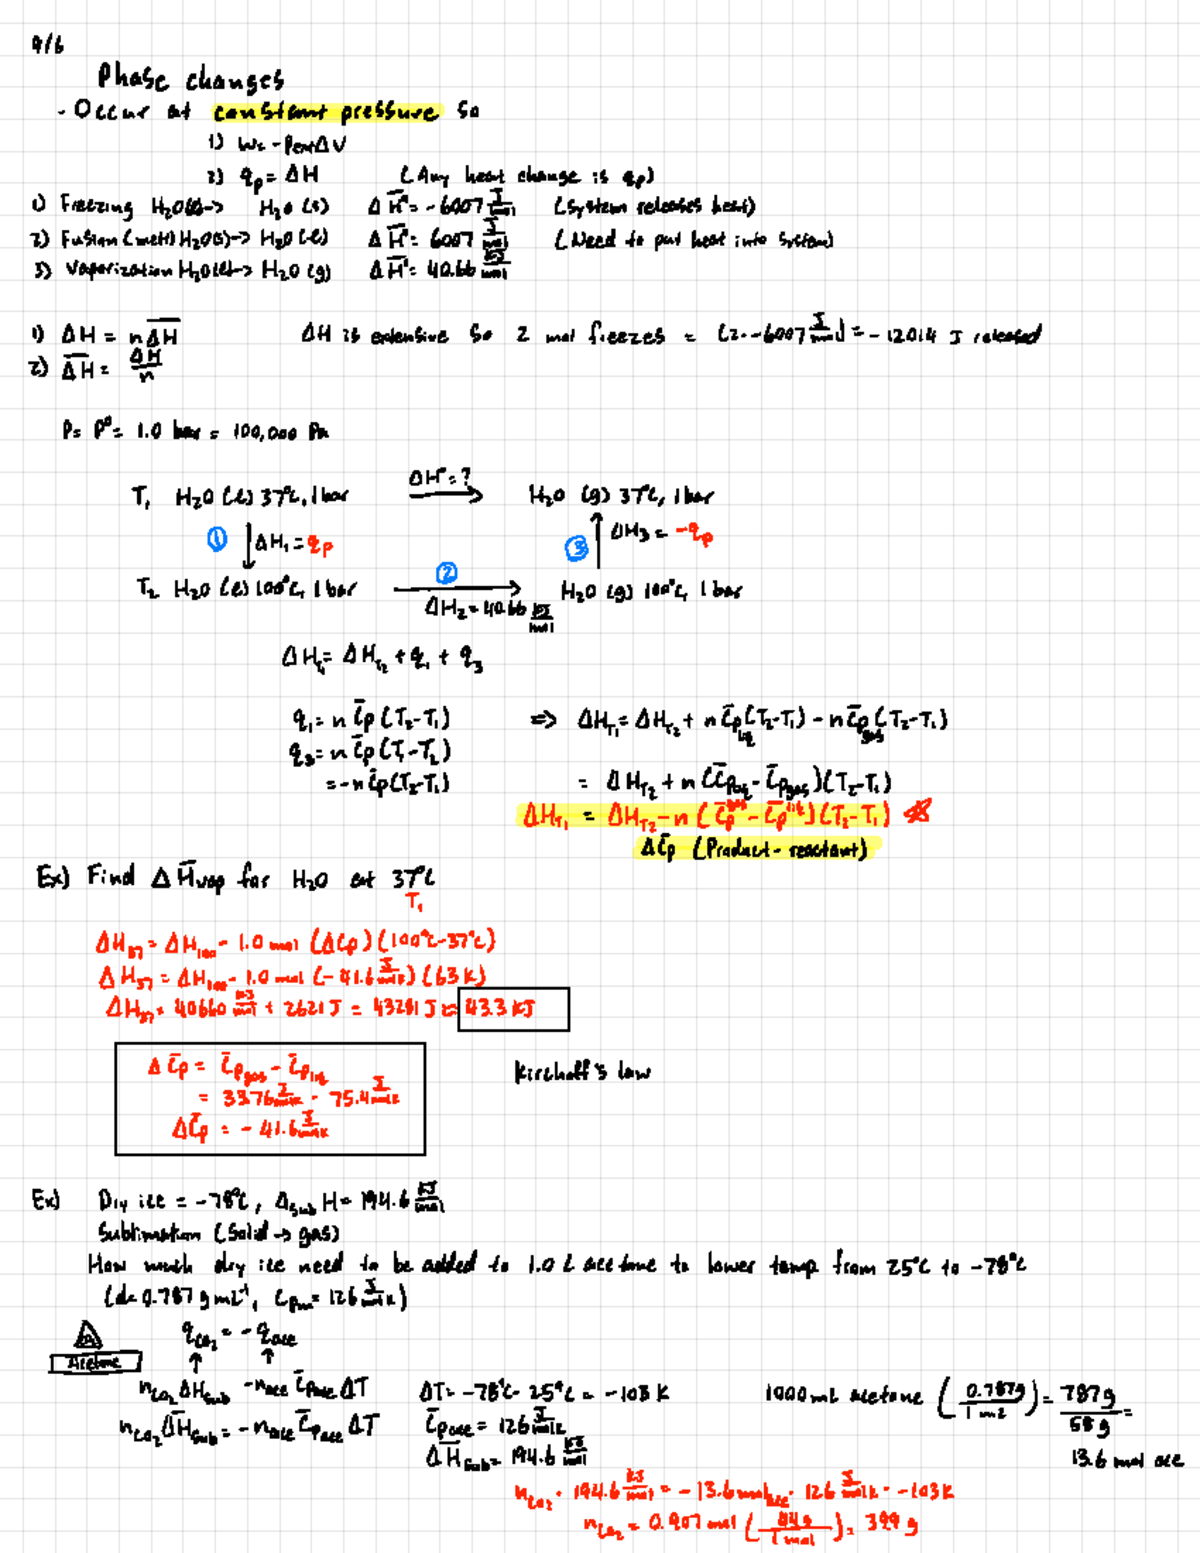 9/6
Phase changes
- Occur at constant pressure so
1) w = -PextΔV
2) qp = ΔH (Any heat change is qp)
1) Freezing H₂O(l)-> H₂O (s) ΔH̅° = -6007 J/mol (System releases heat)
2) Fusion (melt) H₂O(s)-> H₂O (l) ΔH̅° = 6007 J/mol (Need to put heat into system)
3) Vaporization H₂O(l)-> H₂O (g) ΔH̅° = 40.66 kJ/mol
1) ΔH = nΔH̅ ΔH is extensive so 2 mol freezes = (2 · -6007 J/mol) = -12014 J released
2) ΔH̅ = ΔH/n
P = P° = 1.0 bar = 100,000 Pa
T₁ H₂O (l) 37°C, 1 bar ΔH° = ? → H₂O (g) 37°C, 1 bar
① ↓ ΔH₁ = qp ③ ↑ ΔH₃ = -qp
T₂ H₂O (l) 100°C, 1 bar ② → ΔH₂ = 40.66 kJ/mol H₂O (g) 100°C, 1 bar
ΔH_T₁ = ΔH_T₂ + q₁ + q₃
q₁ = n C̅p (T₂-T₁) => ΔH_T₁ = ΔH_T₂ + n C̅p liq (T₂-T₁) - n C̅p gas (T₂-T₁)
q₃ = n C̅p (T₁-T₂)
= -n C̅p (T₂-T₁) = ΔH_T₂ + n (C̅p liq - C̅p gas)(T₂-T₁)
ΔH_T₁ = ΔH_T₂ - n (C̅p gas - C̅p liq)(T₂-T₁)
ΔC̅p (Product - reactant)
Ex) Find ΔH̅vap for H₂O at 37°C
T₁
ΔH₃₇ = ΔH₁₀₀ - 1.0 mol (ΔCp)(100°C-37°C)
ΔH₃₇ = ΔH₁₀₀ - 1.0 mol (-41.6 J/molK)(63 K)
ΔH₃₇ = 40660 kJ/mol + 2621 J = 43281 J ≈ 43.3 kJ
ΔC̅p = C̅p gas - C̅p liq Kirchoff's law
= 33.76 J/molK - 75.4 J/molK
ΔC̅p = -41.6 J/molK
Ex) Dry ice = -78°C, Δsub H = 194.6 kJ/mol
Sublimation (Solid -> gas)
How much dry ice need to be added to 1.0 L acetone to lower temp from 25°C to -78°C
(d = 0.787 g mL⁻¹, Cpm = 126 J/molK)
qCO₂ = -qace
Acetone ↑ ↑
nCO₂ ΔH̅sub -nace C̅pace ΔT ΔT = -78°C - 25°C = -103 K 1000 mL acetone (0.787g / 1 mL) = 787 g / 58 g =
nCO₂ ΔH̅sub = -nace C̅pace ΔT C̅pace = 126 J/molK
ΔH̅sub = 194.6 kJ/mol 13.6 mol ace
nCO₂ · 194.6 kJ/mol = -13.6 mol ace · 126 J/molK · -103 K
nCO₂ = 0.907 mol (44 g / 1 mol) = 399 g